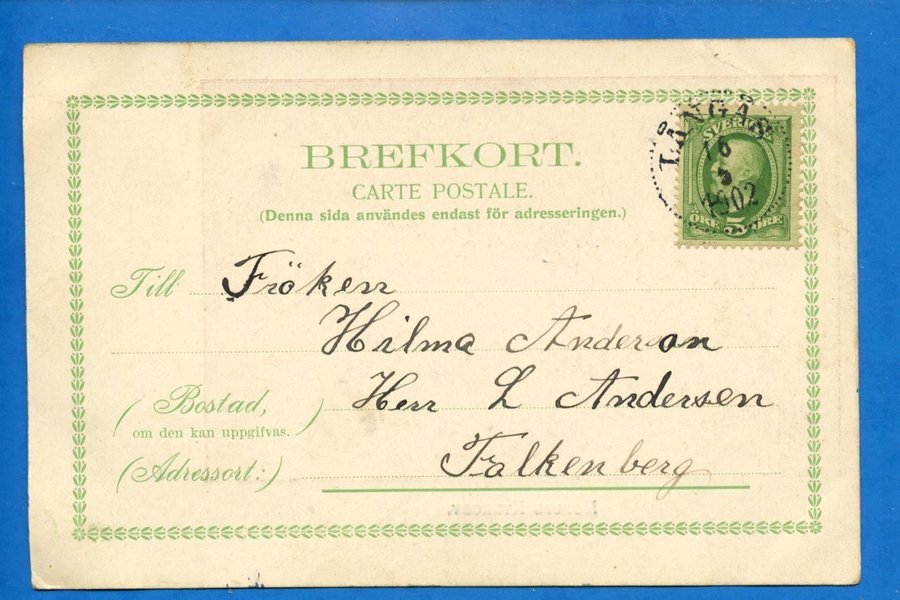 BREFKORT.
CARTE POSTALE.
(Denna sida användes endast för adresseringen.)
LÅNGÅS
SVERIGE
1902
ÖRE 5 ÖRE
Till Fröken
Hilma Anderson
(Bostad,
om den kan uppgifvas.)
Herr L Andersen
(Adressort:)
Falkenberg